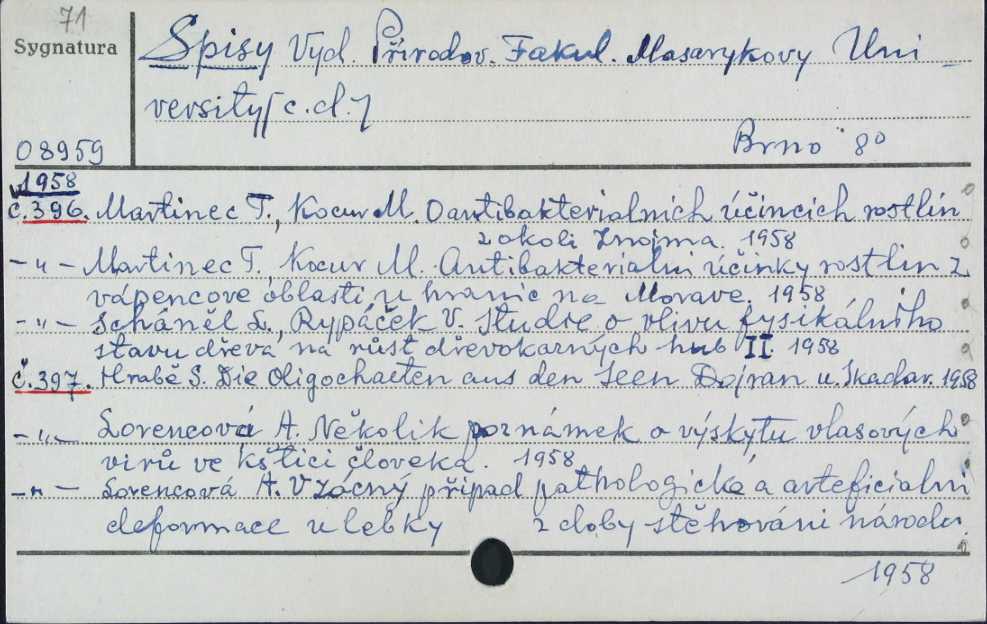 71
Sygnatura
Spisy Vyd. Přírodov. Fakul. Masarykovy Uni-
versity [c.d.]
08959
Brno 8°
1958
č.396. Martinec T., Kocur M. O antibakterialnich účincich rostlin
z okoli Znojma. 1958
-"- Martinec T., Kocur M. Antibakterialni účinky rostlin z
vápencove oblasti u hranic na Morave. 1958
-"- Scháněl L., Rypáček V. Studie o vlivu fysikálního
stavu dřeva na růst dřevokazných hub II. 1958
č.397. Hrabě S. Die Oligochaeten aus den Seen Dojran u. Skadar. 1958
-"- Lorencová A. Několik poznámek o výskytu vlasových
virů ve kštici človeka. 1958
-"- Lorencová A. Vzácný připad pathologické a arteficialni
deformace u lebky z doby stěhováni národu
1958